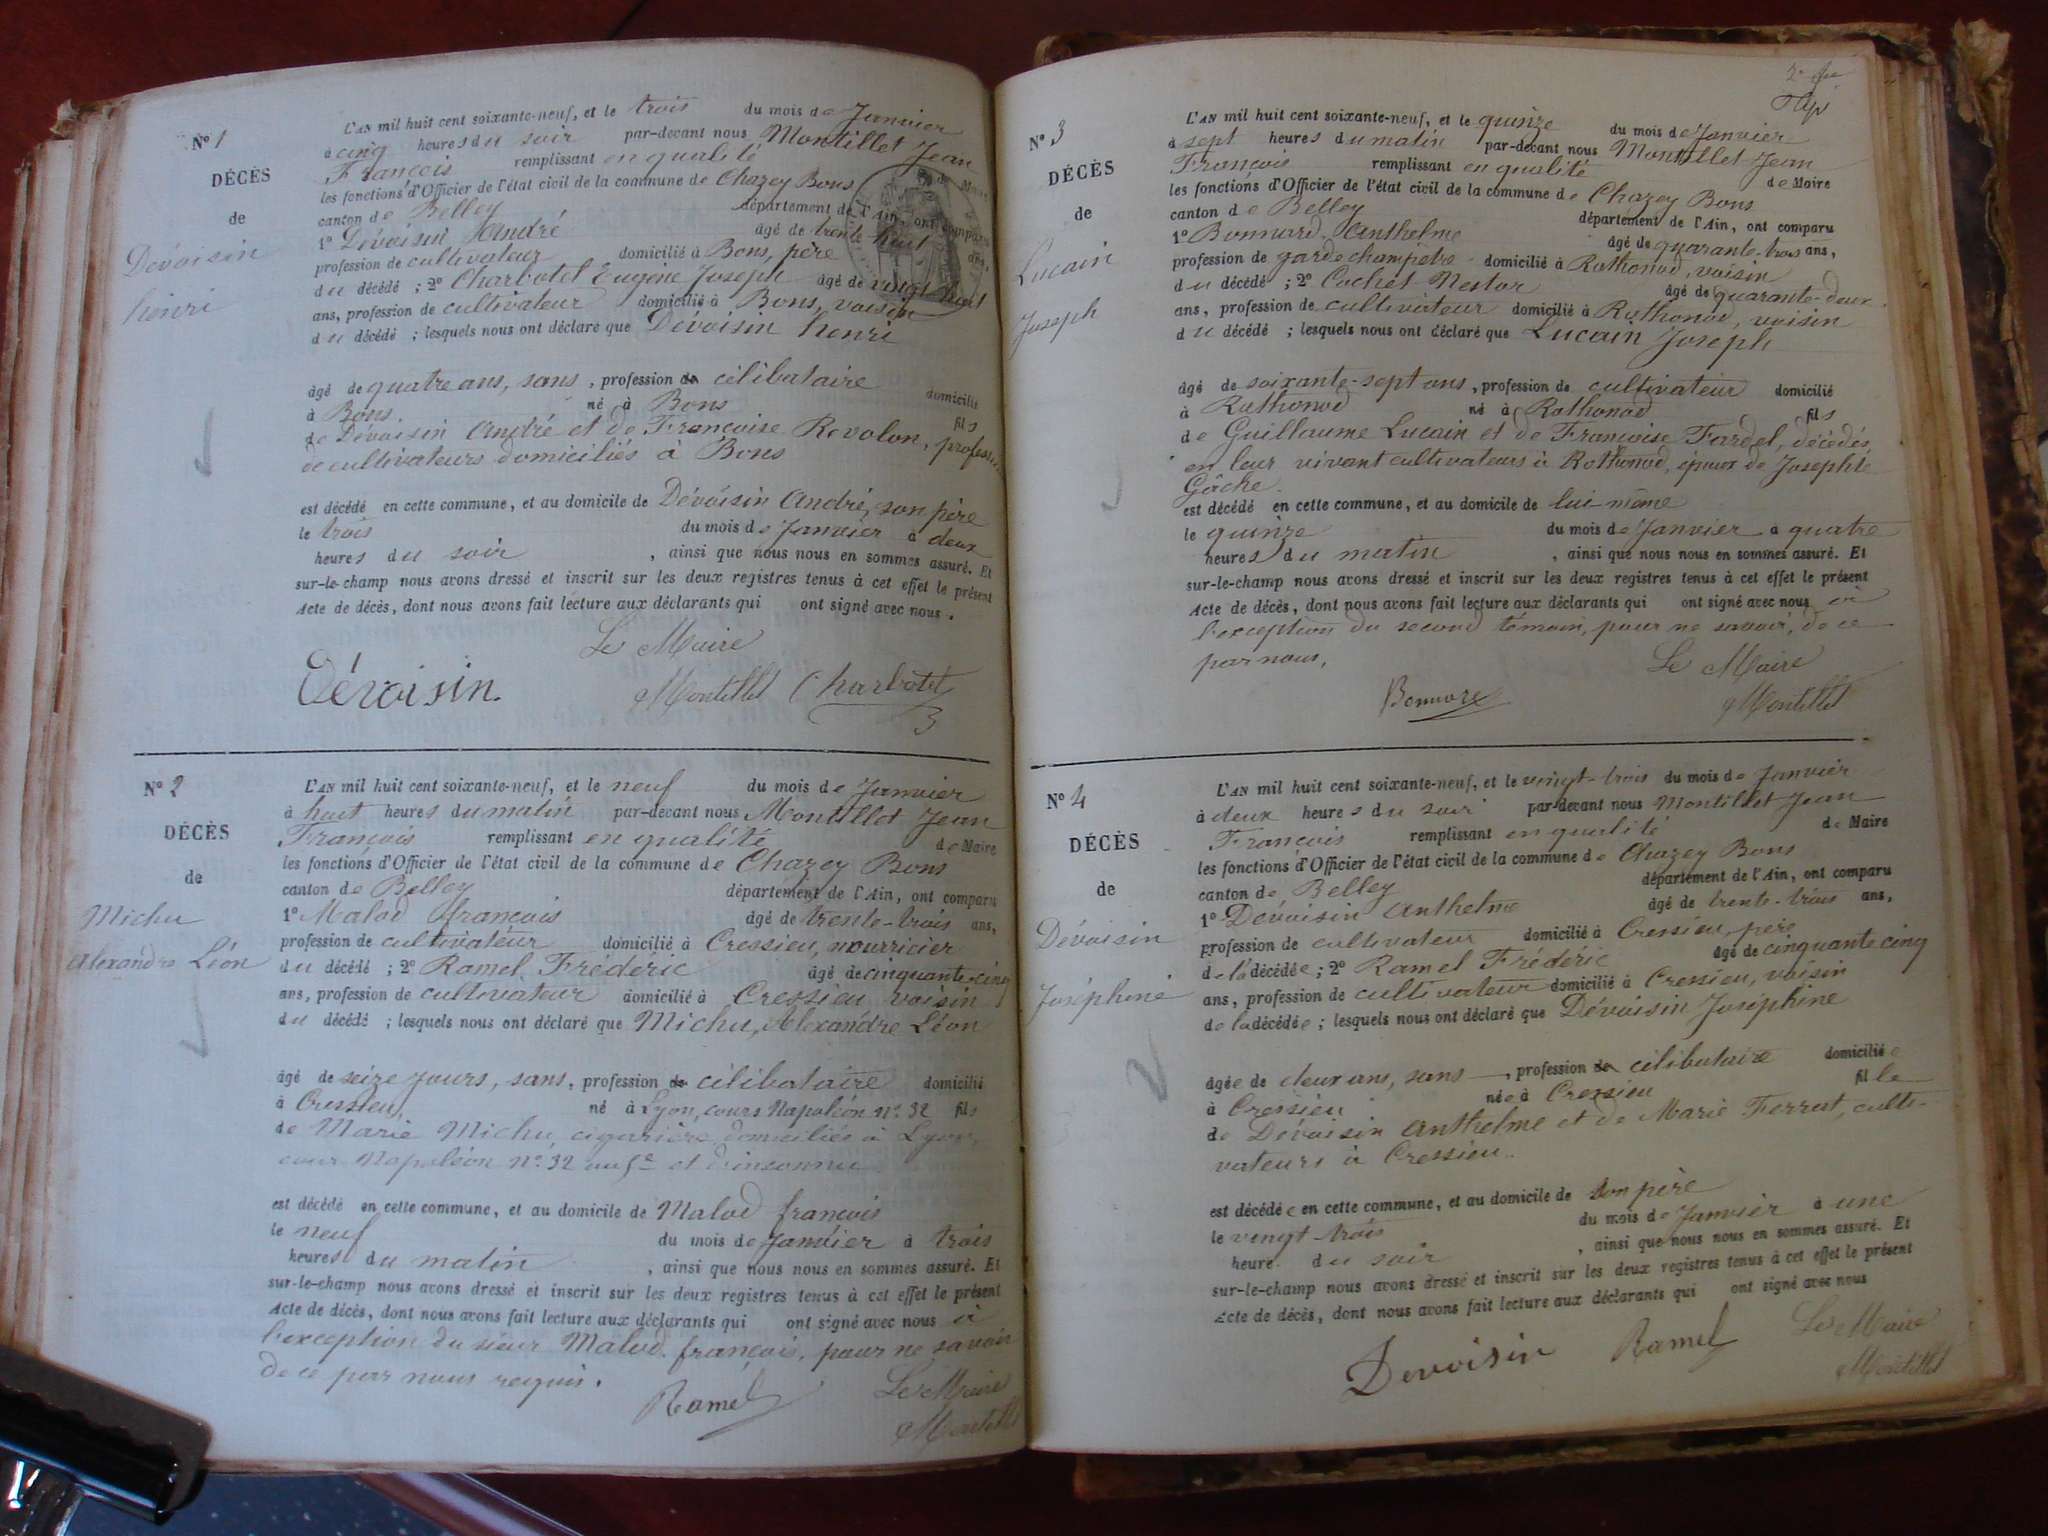 N° 1
DÉCÈS
de
Dévoisin
henri
L'AN mil huit cent soixante-neuf, et le trois du mois de Janvier
à cinq heures du soir par-devant nous Montillet Jean
François remplissant en qualité de Maire
les fonctions d'Officier de l'état civil de la commune de Chazey Bons
canton de Belley département de l'Ain, ont comparu
1° Dévoisin André âgé de trente huit ans,
profession de cultivateur domicilié à Bons, père
du décédé ; 2° Charbotet Eugène Joseph âgé de vingt huit
ans, profession de cultivateur domicilié à Bons, voisin
du décédé ; lesquels nous ont déclaré que Dévoisin henri
âgé de quatre ans, sans, profession de célibataire domicilié
à Bons né à Bons fils
de Dévoisin André et de Françoise Revolon, profession
de cultivateurs domiciliés à Bons
est décédé en cette commune, et au domicile de Dévoisin André, son père
le trois du mois de Janvier à deux
heures du soir, ainsi que nous nous en sommes assuré. Et
sur-le-champ nous avons dressé et inscrit sur les deux registres tenus à cet effet le présent
Acte de décès, dont nous avons fait lecture aux déclarants qui ont signé avec nous.
Le Maire
Dévoisin. Montillet Charbotet
N° 2
DÉCÈS
de
Michu
Alexandre Léon
L'AN mil huit cent soixante-neuf, et le neuf du mois de Janvier
à huit heures du matin par-devant nous Montillet Jean
François remplissant en qualité de Maire
les fonctions d'Officier de l'état civil de la commune de Chazey Bons
canton de Belley département de l'Ain, ont comparu
1° Malod françois âgé de trente-trois ans,
profession de cultivateur domicilié à Cressieu, nourricier
du décédé ; 2° Ramel Frédéric âgé de cinquante-cinq
ans, profession de cultivateur domicilié à Cressieu voisin
du décédé ; lesquels nous ont déclaré que Michu, Alexandre Léon
âgé de seize jours, sans, profession de célibataire domicilié
à Cressieu, né à Lyon, cours Napoléon n°. 32 fils
de Marie Michu, cigarière domiciliée à Lyon,
cour Napoléon N°. 32 et d'inconnu
est décédé en cette commune, et au domicile de Malod françois
le neuf du mois de Janvier à trois
heures du matin, ainsi que nous nous en sommes assuré. Et
sur-le-champ nous avons dressé et inscrit sur les deux registres tenus à cet effet le présent
Acte de décès, dont nous avons fait lecture aux déclarants qui ont signé avec nous à
l'exception du sieur Malod françois, pour ne savoir
de ce par nous requis.
Ramel Le Maire
Montillet
N° 3
DÉCÈS
de
Lucain
Joseph
L'AN mil huit cent soixante-neuf, et le quinze du mois de Janvier
à sept heures du matin par-devant nous Montillet Jean
François remplissant en qualité de Maire
les fonctions d'Officier de l'état civil de la commune de Chazey Bons
canton de Belley département de l'Ain, ont comparu
1° Bonnard Anthelme âgé de quarante-trois ans,
profession de garde champêtre domicilié à Rothonod, voisin
du décédé ; 2° Cochet Nestor âgé de quarante-deux
ans, profession de cultivateur domicilié à Rothonod, voisin
du décédé ; lesquels nous ont déclaré que Lucain Joseph
âgé de soixante-sept ans, profession de cultivateur domicilié
à Rothonod né à Rothonod fils
de Guillaume Lucain et de Françoise Fardel, décédés,
en leur vivant cultivateurs à Rothonod, époux de Josephte
Gâche.
est décédé en cette commune, et au domicile de lui-même
le quinze du mois de Janvier à quatre
heures du matin, ainsi que nous nous en sommes assuré. Et
sur-le-champ nous avons dressé et inscrit sur les deux registres tenus à cet effet le présent
Acte de décès, dont nous avons fait lecture aux déclarants qui ont signé avec nous à
l'exception du second témoin, pour ne savoir, de ce
par nous,
Le Maire
Montillet
N° 4
DÉCÈS
de
Dévoisin
Joséphine
L'AN mil huit cent soixante-neuf, et le vingt-trois du mois de Janvier
à deux heures du soir par-devant nous Montillet Jean
François remplissant en qualité de Maire
les fonctions d'Officier de l'état civil de la commune de Chazey Bons
canton de Belley département de l'Ain, ont comparu
1° Dévoisin Anthelme âgé de trente-trois ans,
profession de cultivateur domicilié à Cressieu, père
de la décédée ; 2° Ramel Frédéric âgé de cinquante cinq
ans, profession de cultivateur domicilié à Cressieu, voisin
de la décédée ; lesquels nous ont déclaré que Dévoisin Joséphine
âgée de deux ans, sans, profession de célibataire domiciliée
à Cressieu née à Cressieu fille
de Dévoisin Anthelme et de Marie Ferrut, culti-
vateurs à Cressieu.
est décédée en cette commune, et au domicile de son père
le vingt-trois du mois de Janvier à une
heure du soir, ainsi que nous nous en sommes assuré. Et
sur-le-champ nous avons dressé et inscrit sur les deux registres tenus à cet effet le présent
Acte de décès, dont nous avons fait lecture aux déclarants qui ont signé avec nous
Devoisin Ramel Le Maire
Montillet